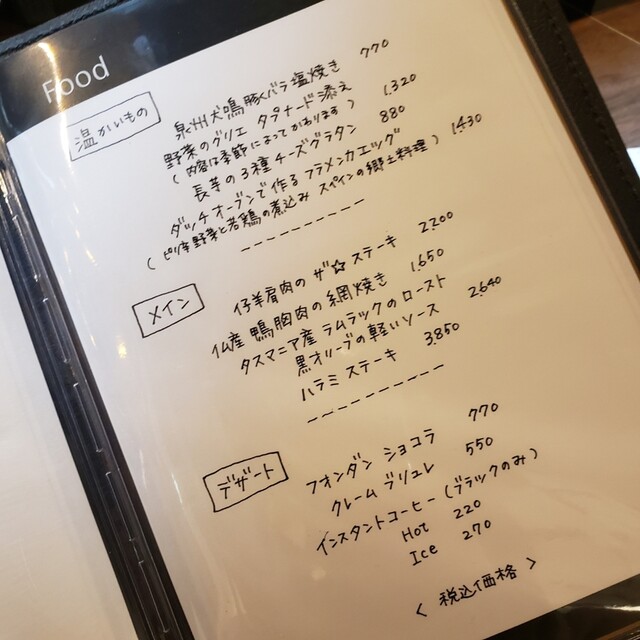 Food
温かいもの
泉州犬鳴豚バラ塩焼き 770
野菜のグリエ タプナード添え 1,320
(内容は季節によってかわります)
長芋の3種チーズグラタン 880
ダッチオーブンで作るフラメンカエッグ 1,430
(ピリ辛野菜と若鶏の煮込み スペインの郷土料理)
メイン
仔羊肩肉の ザ☆ステーキ 2,200
仏産 鴨胸肉の網焼き 1,650
タスマニア産 ラムラックのロースト 2,640
黒オリーブの軽いソース
ハラミステーキ 3,850
デザート
フォンダン ショコラ 770
クレームブリュレ 550
インスタントコーヒー(ブラックのみ)
Hot 220
Ice 270
<税込価格>